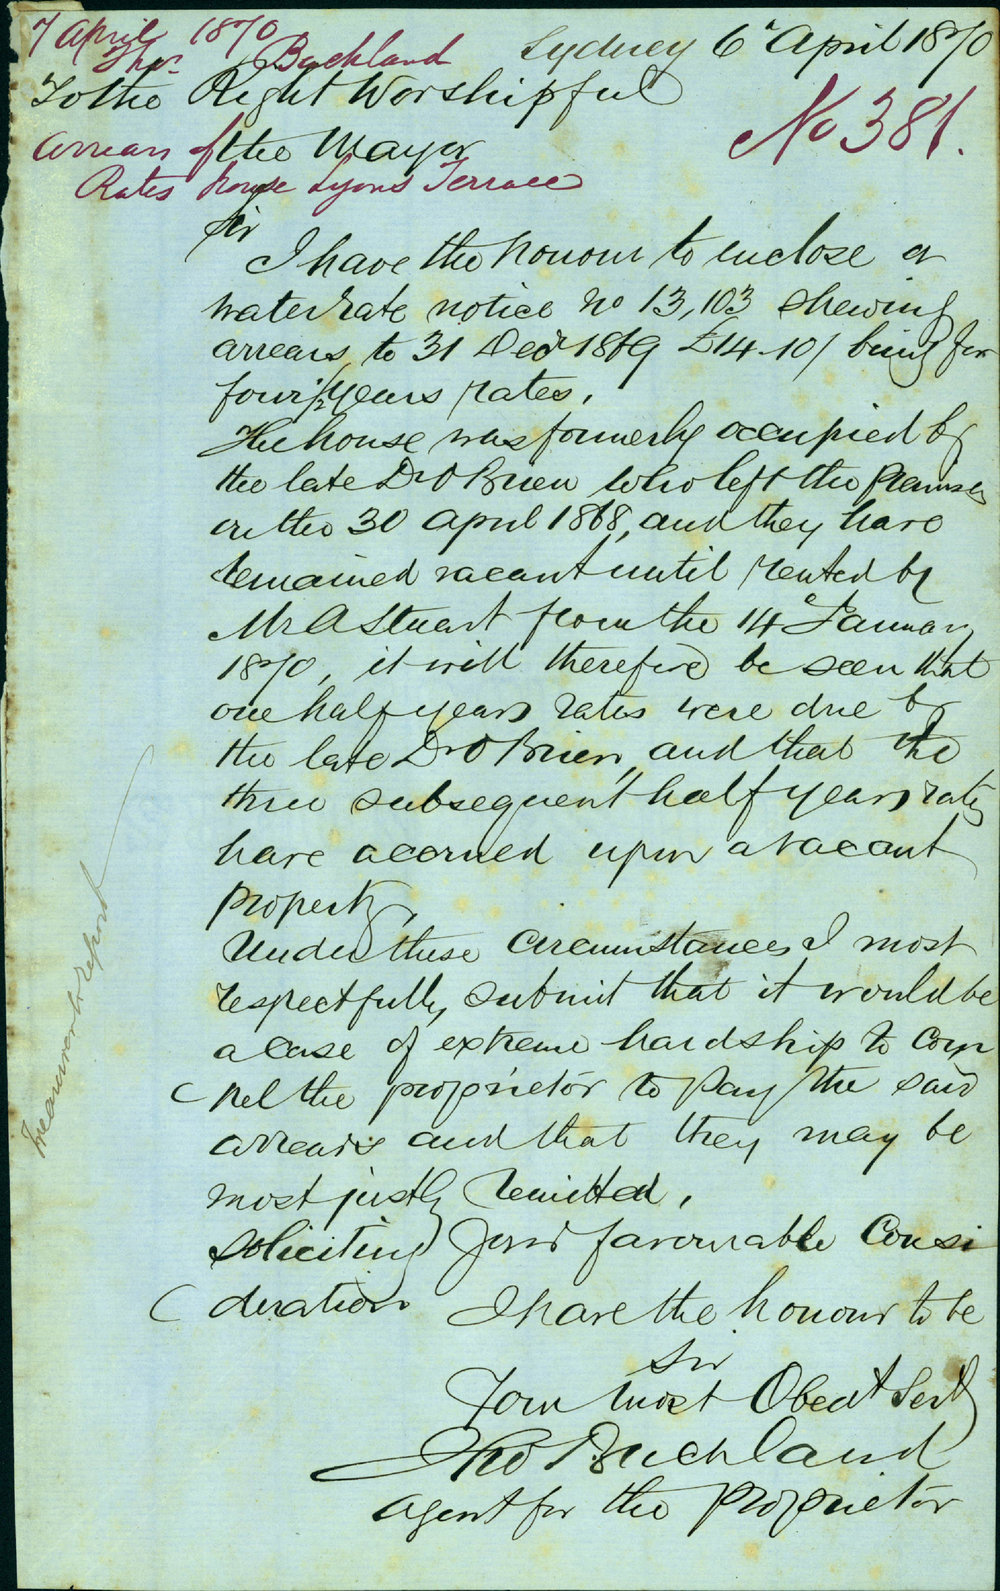 7 April 1870
Thos. Buckland
Sydney 6 April 1870
To the Right Worshipful
No 381.
Arrears of
the Mayor
Rates house Lyons Terrace
Sir
I have the honour to enclose a
water rate notice No 13,103 shewing
arrears to 31 Decr 1869 £14.10/ being for
four ½ years rates.
The house was formerly occupied by
the late Dr O Brien who left the premises
on the 30 April 1868, and they have
remained vacant until rented by
Mr A Stuart from the 14 January
1870, it will therefore be seen that
one half years rates were due by
the late Dr O Brien, and that the
three subsequent half years rates
have accrued upon a vacant
property,
Under these circumstances I most
respectfully submit that it would be
a case of extreme hardship to com
pel the proprietor to pay the said
arrears and that they may be
most justly remitted.
Soliciting your favourable Consi
deration I have the honour to be
Sir
Your most Obedt Servt
Thos Buckland
Agent for the Proprietor
Treasurer to report